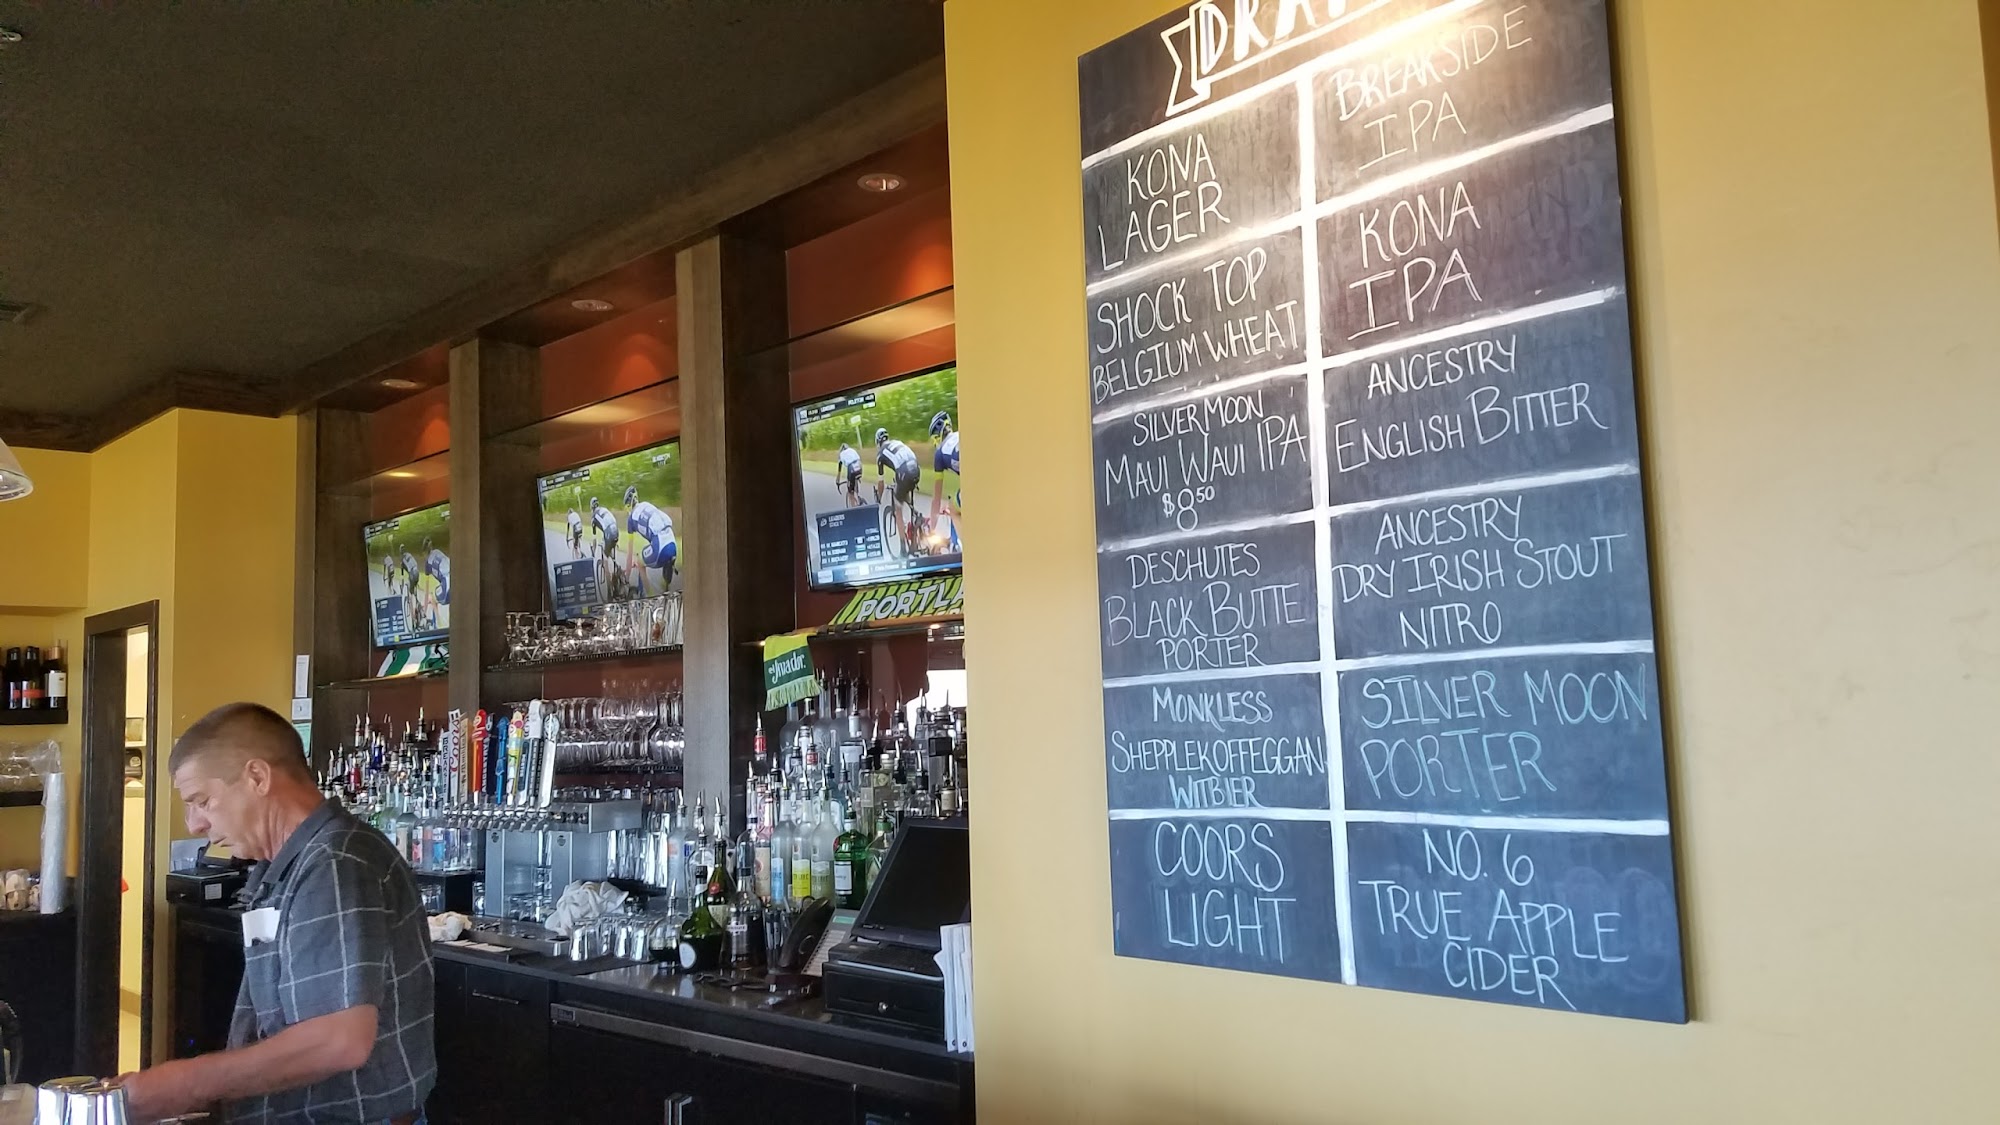 KONA
LAGER
SHOCK TOP
BELGIUM WHEAT
SILVER MOON
MAUI WAUI IPA
$8.50
DESCHUTES
BLACK BUTTE
PORTER
MONKLESS
SHEPPLEKOFFEGGAN
WITBIER
COORS
LIGHT
BREAKSIDE
IPA
KONA
IPA
ANCESTRY
ENGLISH BITTER
ANCESTRY
DRY IRISH STOUT
NITRO
SILVER MOON
PORTER
NO. 6
TRUE APPLE
CIDER
el Jimador.
Coors